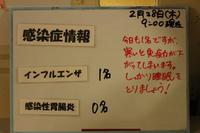 2月28日(木)
9:00現在
感染症情報
インフルエンザ 1%
感染性胃腸炎 0%
今日も1%ですが、
寒いと免疫力が下
がってしまいます。
しっかり睡眠を
とりましょう！